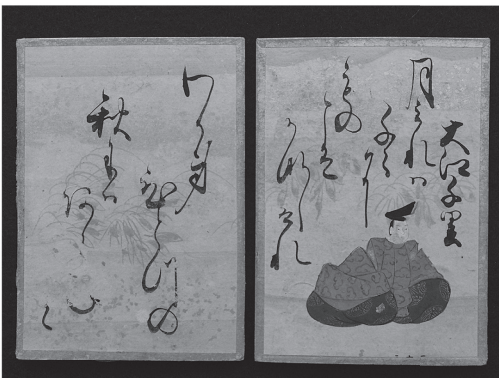 大江千里
月みれハ
ちゝに
もの
こそ
かなしけれ
わか身
ひとつの
秋にハ
あらね
と